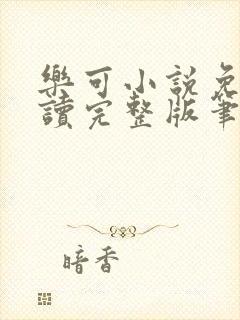 樂可小說免
讀完整版筆
暗香